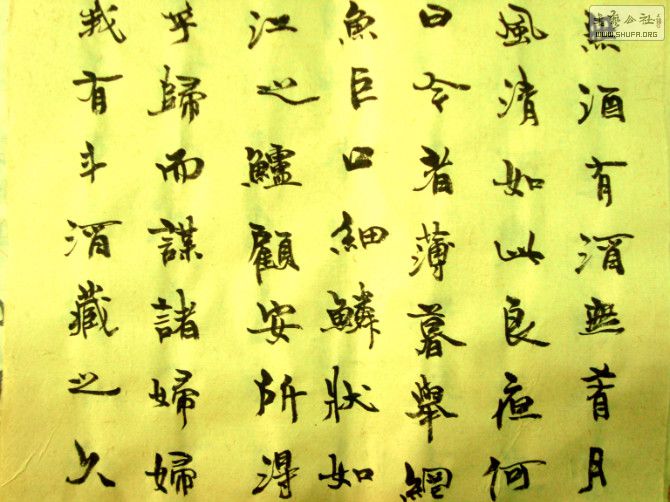 無酒有酒無肴月
風清如此良夜何
曰今者薄暮舉網
魚巨口細鱗狀如
江之鱸顧安所得
乎歸而謀諸婦婦
我有斗酒藏之久
WWW.SHUFA.ORG